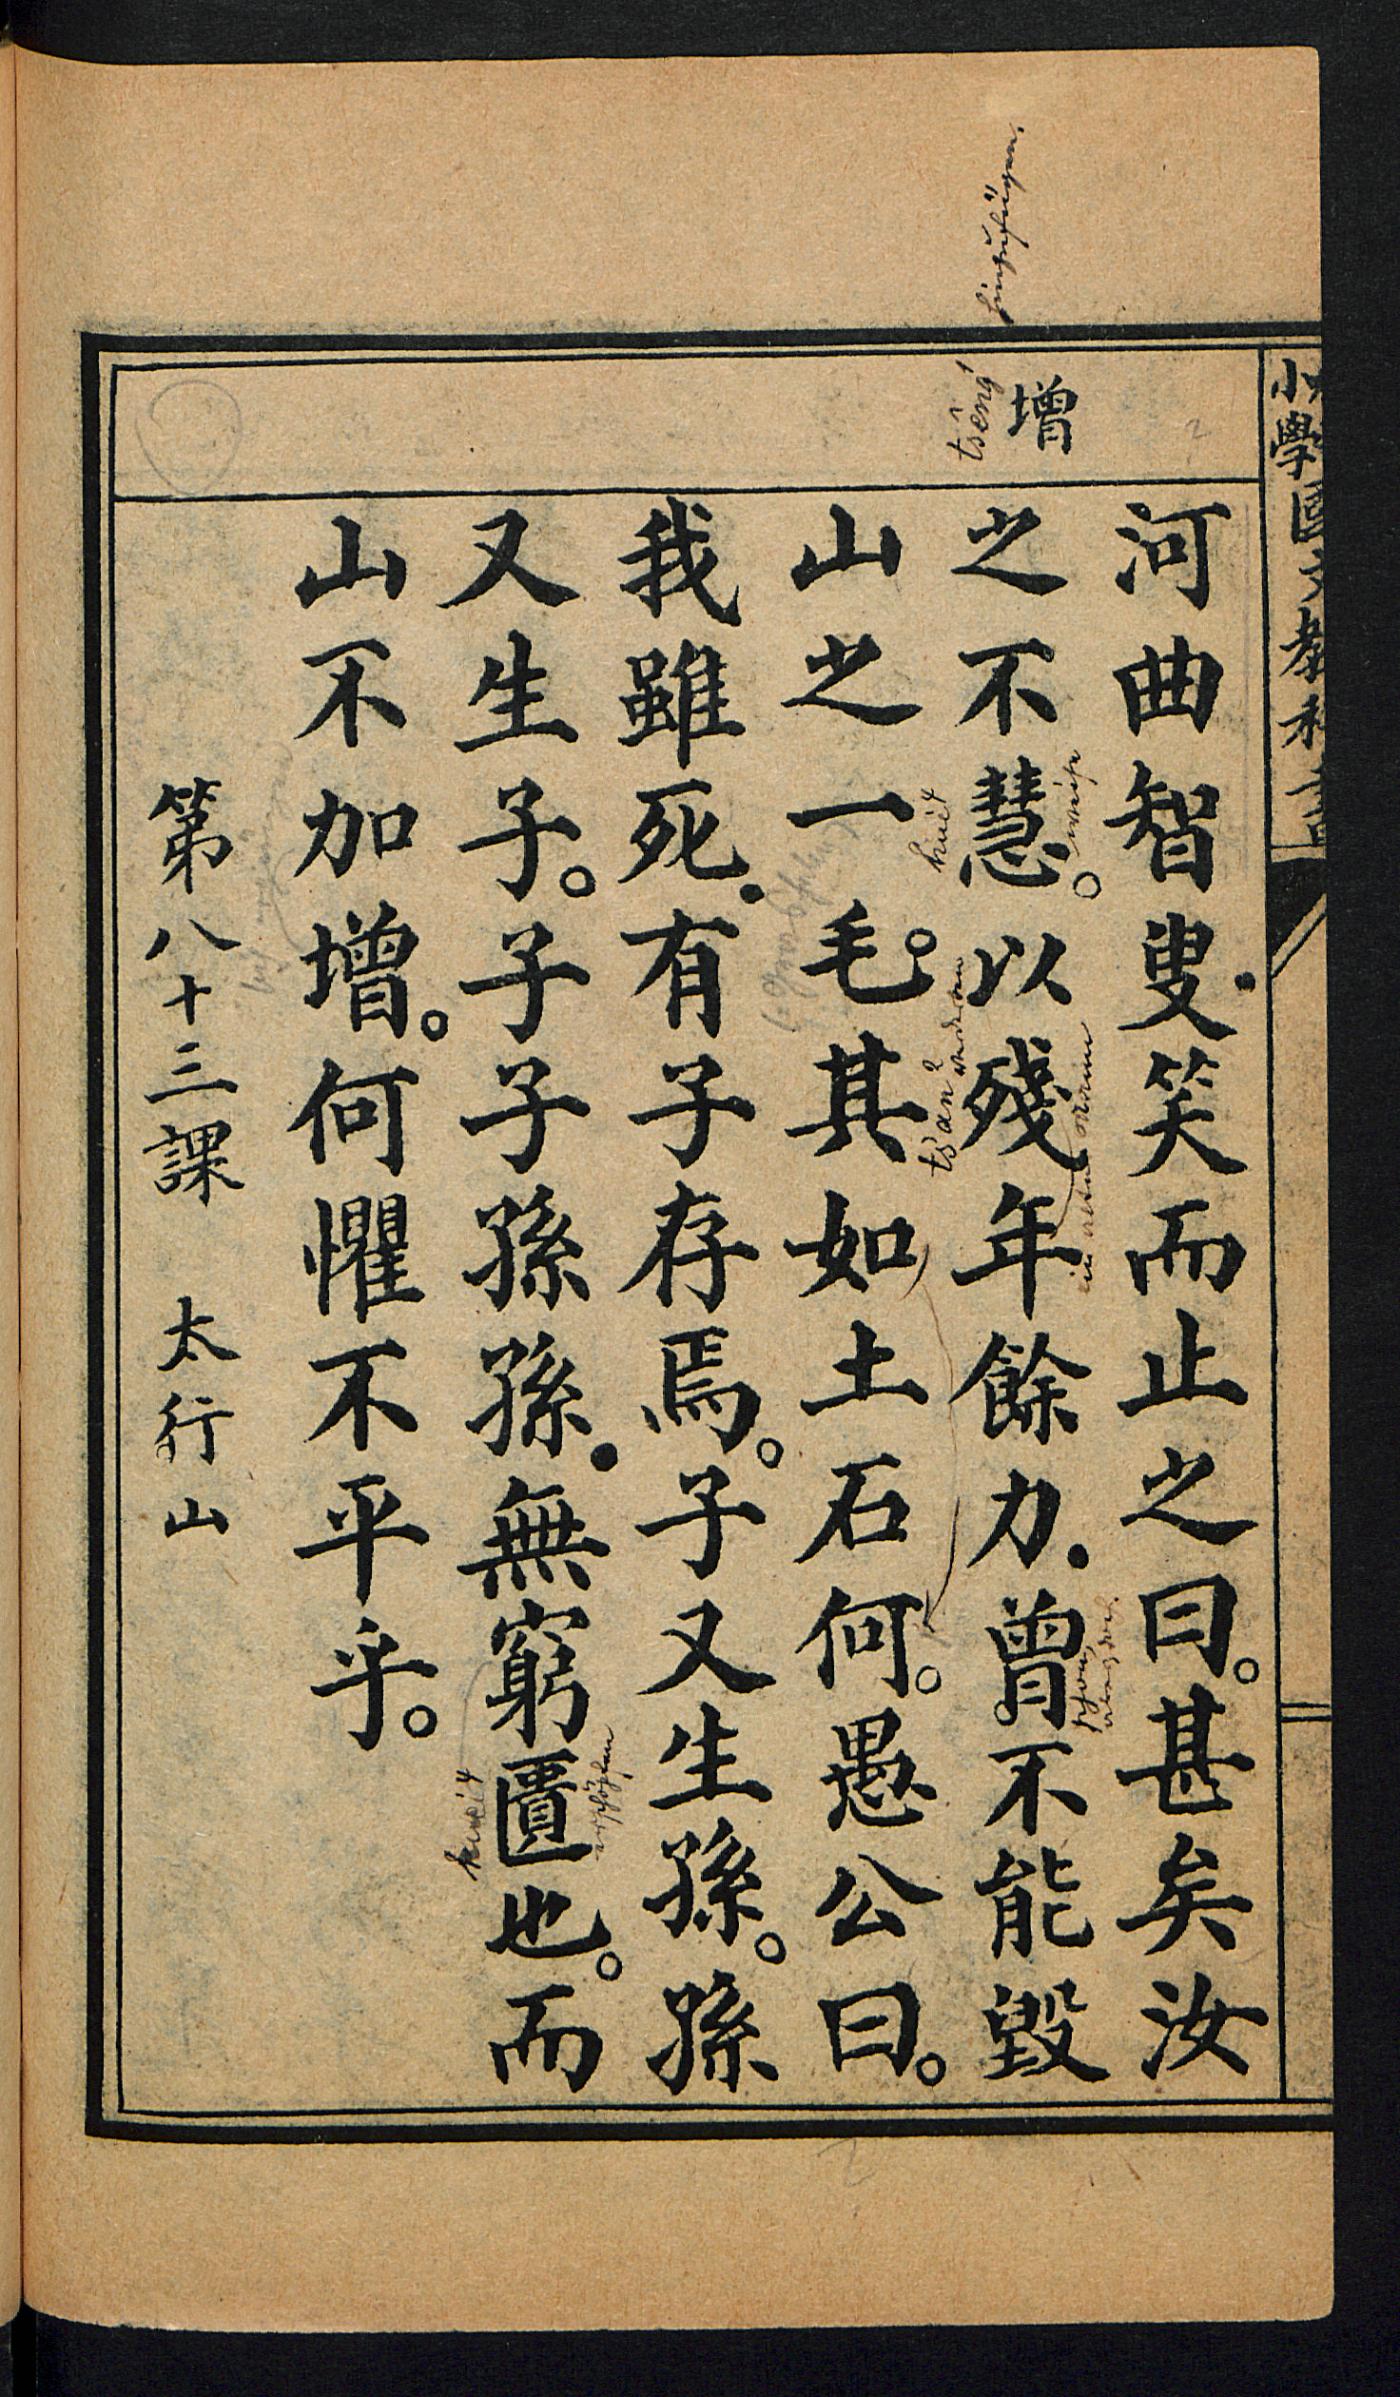 小學國文教科書
增
tsêng¹
hinzufügen.
河曲智叟.笑而止之曰。甚矣汝
之不慧。以殘年餘力.曾不能毀
山之一毛。其如土石何。愚公曰。
我雖死.有子存焉。子又生孫。孫
又生子。子子孫孫.無窮匱也。而
山不加增。何懼不平乎。
第八十三課 太行山
hui⁴
weise
ts'an²
schon,
kuei⁴
erschöpfen